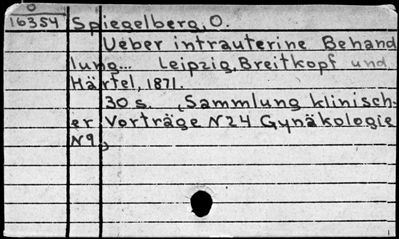 O
16354 Spiegelberg, O.
Ueber intrauterine Behand
lung... Leipzig, Breitkopf und
Härtel, 1871.
30 s. (Sammlung klinisch-
er Vorträge N24 Gynäkologie
N9)